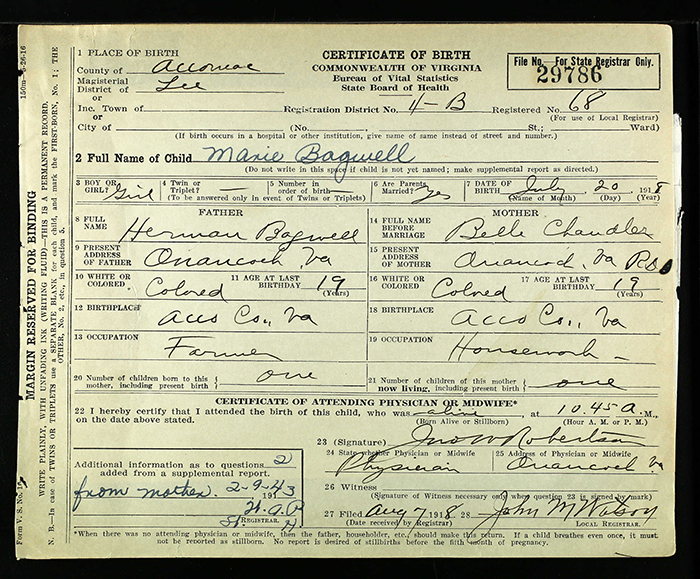 1 PLACE OF BIRTH
County of Accomac
Magisterial District of Lee
or
Inc. Town of
City of
CERTIFICATE OF BIRTH
COMMONWEALTH OF VIRGINIA
Bureau of Vital Statistics
State Board of Health
File No.—For State Registrar Only.
29786
Registration District No. 4-B Registered No. 68
(For use of Local Registrar)
(No. St.; Ward)
(If birth occurs in a hospital or other institution, give name of same instead of street and number.)
2 Full Name of Child Marie Bagwell
(Do not write in this space if child is not yet named; make supplemental report as directed.)
3 BOY OR GIRL? Girl
4 Twin or Triplet? —
5 Number in order of birth —
(To be answered only in event of Twins or Triplets)
6 Are Parents Married? Yes
7 DATE OF BIRTH July 20 1918
(Name of Month) (Day) (Year)
FATHER
8 FULL NAME Herman Bagwell
9 PRESENT ADDRESS OF FATHER Onancock Va
10 WHITE OR COLORED Colored
11 AGE AT LAST BIRTHDAY 19 (Years)
12 BIRTHPLACE Acco Co., Va
13 OCCUPATION Farmer
20 Number of children born to this mother, including present birth one
MOTHER
14 FULL NAME BEFORE MARRIAGE Belle Chandler
15 PRESENT ADDRESS OF MOTHER Onancock, Va
16 WHITE OR COLORED Colored
17 AGE AT LAST BIRTHDAY 19 (Years)
18 BIRTHPLACE Acco Co., Va
19 OCCUPATION Housework —
21 Number of children of this mother now living, including present birth one
CERTIFICATE OF ATTENDING PHYSICIAN OR MIDWIFE*
22 I hereby certify that I attended the birth of this child, who was alive, at 10.45 a. M.,
on the date above stated. (Born Alive or Stillborn) (Hour A. M. or P. M.)
23 (Signature) Jno W Robertson
24 State whether Physician or Midwife Physician
25 Address of Physician or Midwife Onancock Va
26 Witness
(Signature of Witness necessary only when question 23 is signed by mark)
27 Filed Aug 7 1918 28 John M Watson
(Date received by Registrar) LOCAL REGISTRAR.
Additional information as to questions 2
added from a supplemental report.
from mother. 2-9-43
191
H.A.P.
REGISTRAR.
*When there was no attending physician or midwife, then the father, householder, etc., should make this return. If a child breathes even once, it must
not be reported as stillborn. No report is desired of stillbirths before the fifth month of pregnancy.
MARGIN RESERVED FOR BINDING
WRITE PLAINLY, WITH UNFADING INK (WRITING FLUID)—THIS IS A PERMANENT RECORD.
N. B.—In case of TWINS or TRIPLETS use a SEPARATE BLANK for each child, and mark the FIRST-BORN, No. 1; THE
OTHER, No. 2, etc., in question 5.
Form V. S. No. 1